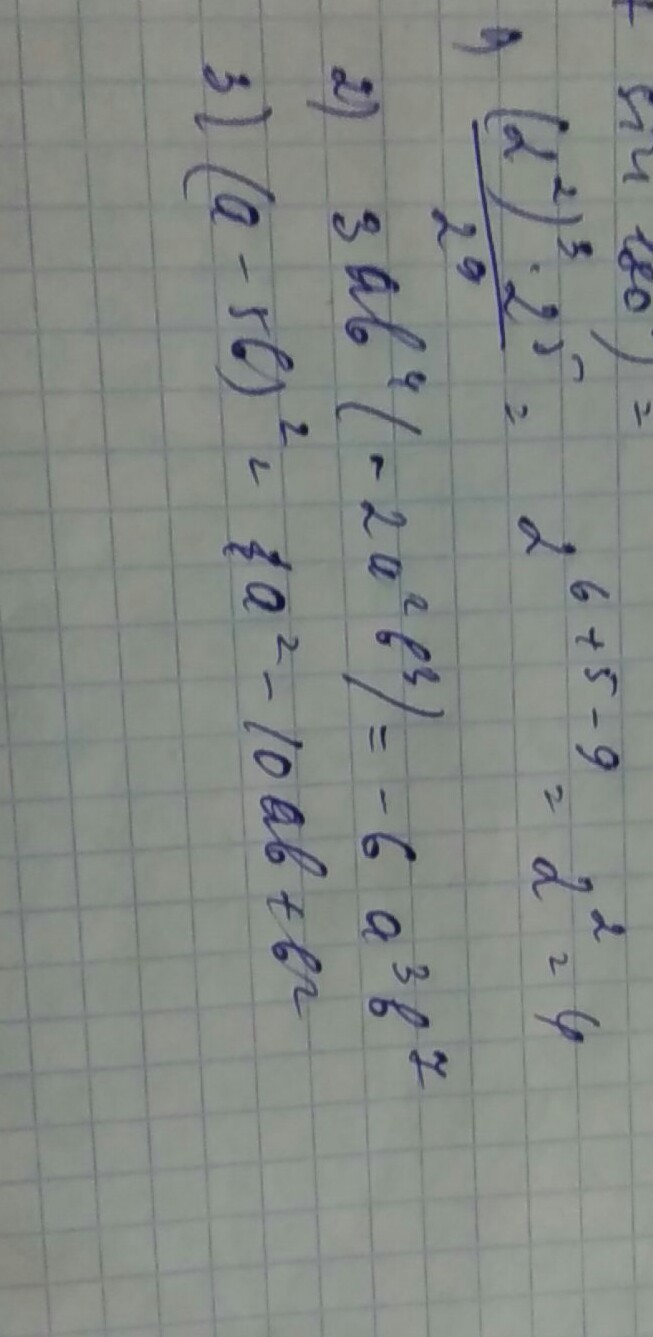 sin 180°) =
1) (2²)³ · 2⁵ / 2⁹ = 2⁶⁺⁵⁻⁹ = 2² = 4
2) 3ab⁴(-2a²b³) = -6a³b⁷
3) (a - 5b)² = a² - 10ab + b2